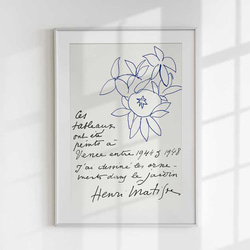 Ces
tableaux
ont été
peints à
Vence entre 1944 & 1948
J'ai dessiné les orne-
ments dans le jardin
Henri Matisse